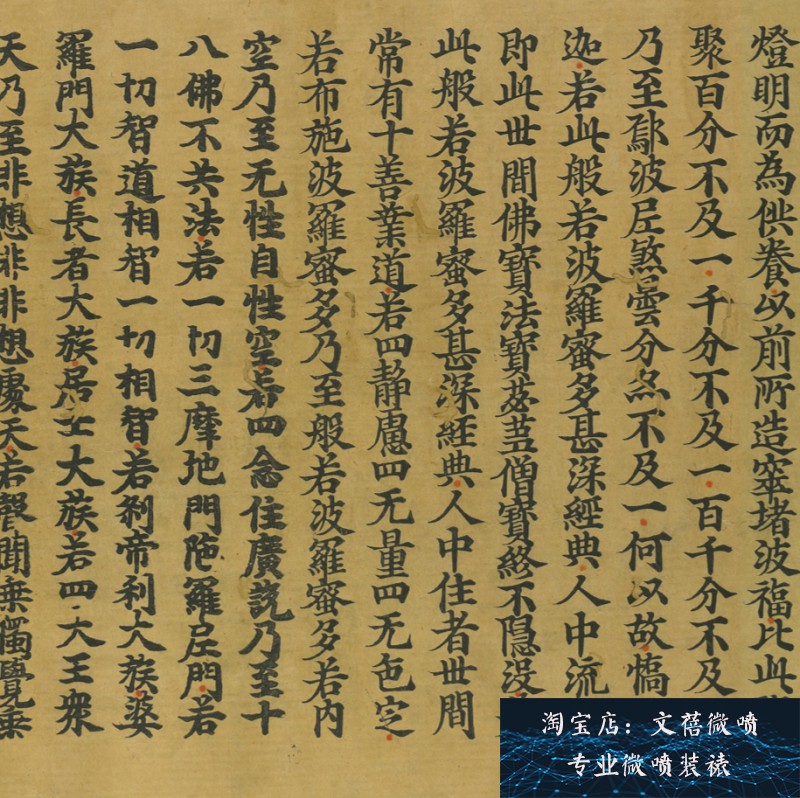 燈明而為供養以前所造窣堵波福比此
聚百分不及一千分不及一百千分不及
乃至鄔波尼煞曇分亦不及一何以故憍
迦若此般若波羅蜜多甚深經典人中流
即此世間佛寶法寶苾芻僧寶終不隱没
此般若波羅蜜多甚深經典人中住者世間
常有十善業道若四静慮四无量四无色定
若布施波羅蜜多乃至般若波羅蜜多若内
空乃至无性自性空若四念住廣説乃至十
八佛不共法若一切三摩地門陁羅尼門若
一切智道相智一切相智若刹帝利大族婆
羅門大族長者大族居士大族若四大王衆
天乃至非想非非想處天若聲聞乗獨覺乗
淘宝店：文蓓微喷
专业微喷装裱